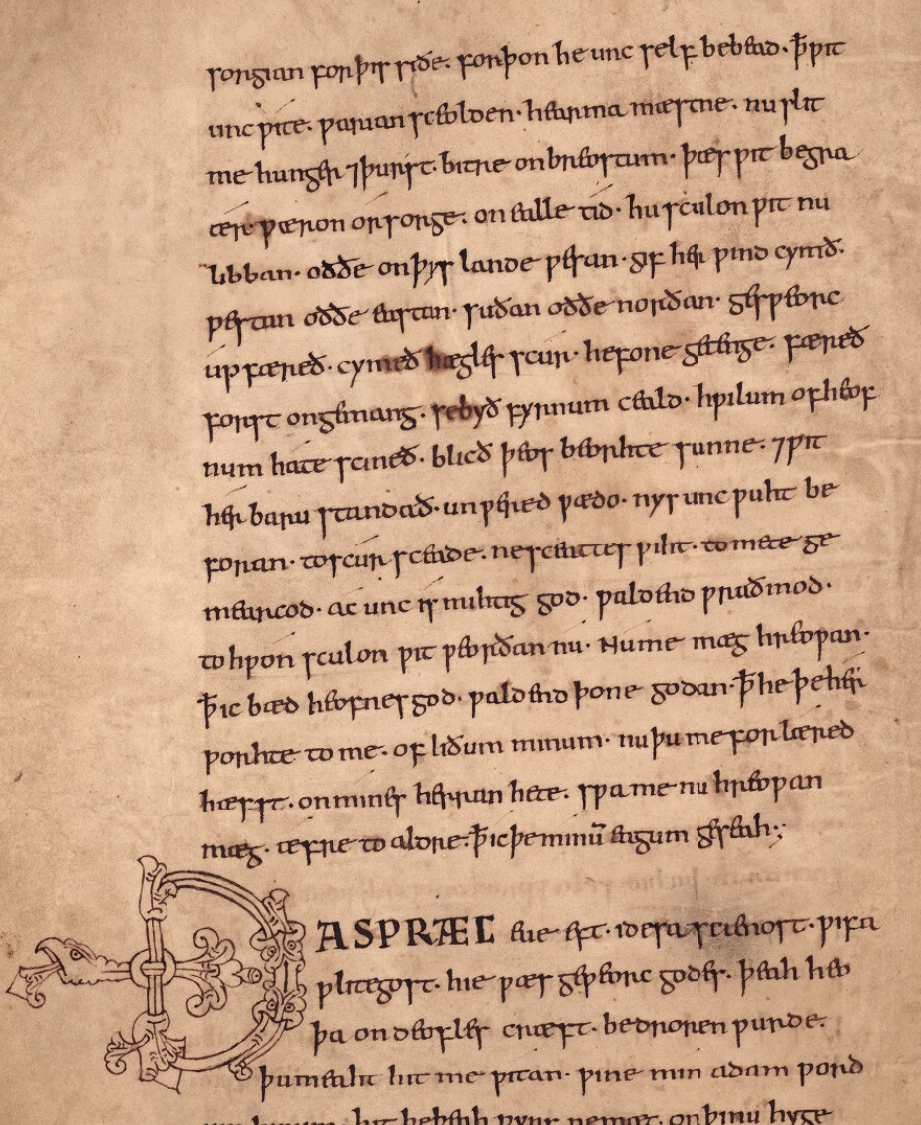 sorgian for þis siðe. forþon he unc self bebead. ꝥ ƿit
unc ƿite. ƿarian sceolden. hearma mæstne. nu slit
me hunger ⁊ þurst. bitre on breostum. þæs ƿit begra
ære ƿæron orsorge. on ealle tid. hu sculon ƿit nu
libban. oððe on þys lande ƿesan. gif her ƿind cymð.
ƿestan oððe eastan. suðan oððe norðan. gesƿeorc
up færeð. cymeð hægles scur. hefone getenge. færeð
forst ongemang. se byð fyrnum ceald. hƿilum of heof
num hate scineð. blicð þeos beorhte sunne. ⁊ ƿit
her baru standað. unƿered ƿædo. nys unc ƿuht be
foran. to scur sceade. ne sceattes ƿiht. to mete ge
mearcod. ac unc is mihtig god. ƿaldend ƿraðmod.
to hƿon sculon ƿit ƿeorðan nu. Nu me mæg hreoƿan.
ꝥ ic bæd heofnes god. ƿaldend þone godan. ꝥ he þe her
ƿorhte to me. of liðum minum. nu þu me forlæred
hæfst. on mines herran hete. sƿa me nu hreoƿan
mæg. æfre to aldre. ꝥ ic þe minū eagum geseah:
ÐA SPRÆC eue eft. idesa scienost. ƿifa
ƿlitegost. hie ƿæs geƿeorc godes. þeah heo
þa on deofles cræft. bedroren ƿurde.
þu meaht hit me ƿitan. ƿine min adam ƿord
hit þeah ƿyrs ne mæg. on þinū hyge